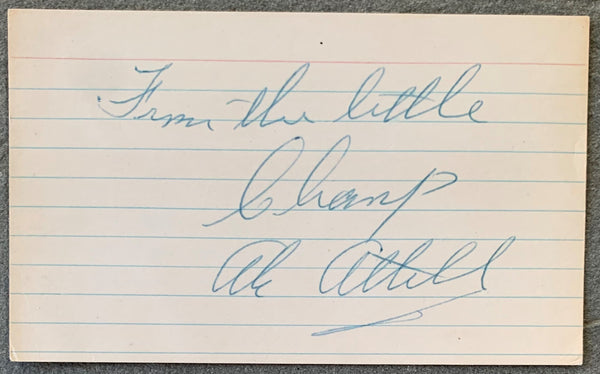 From the little
Champ
Abe Attell